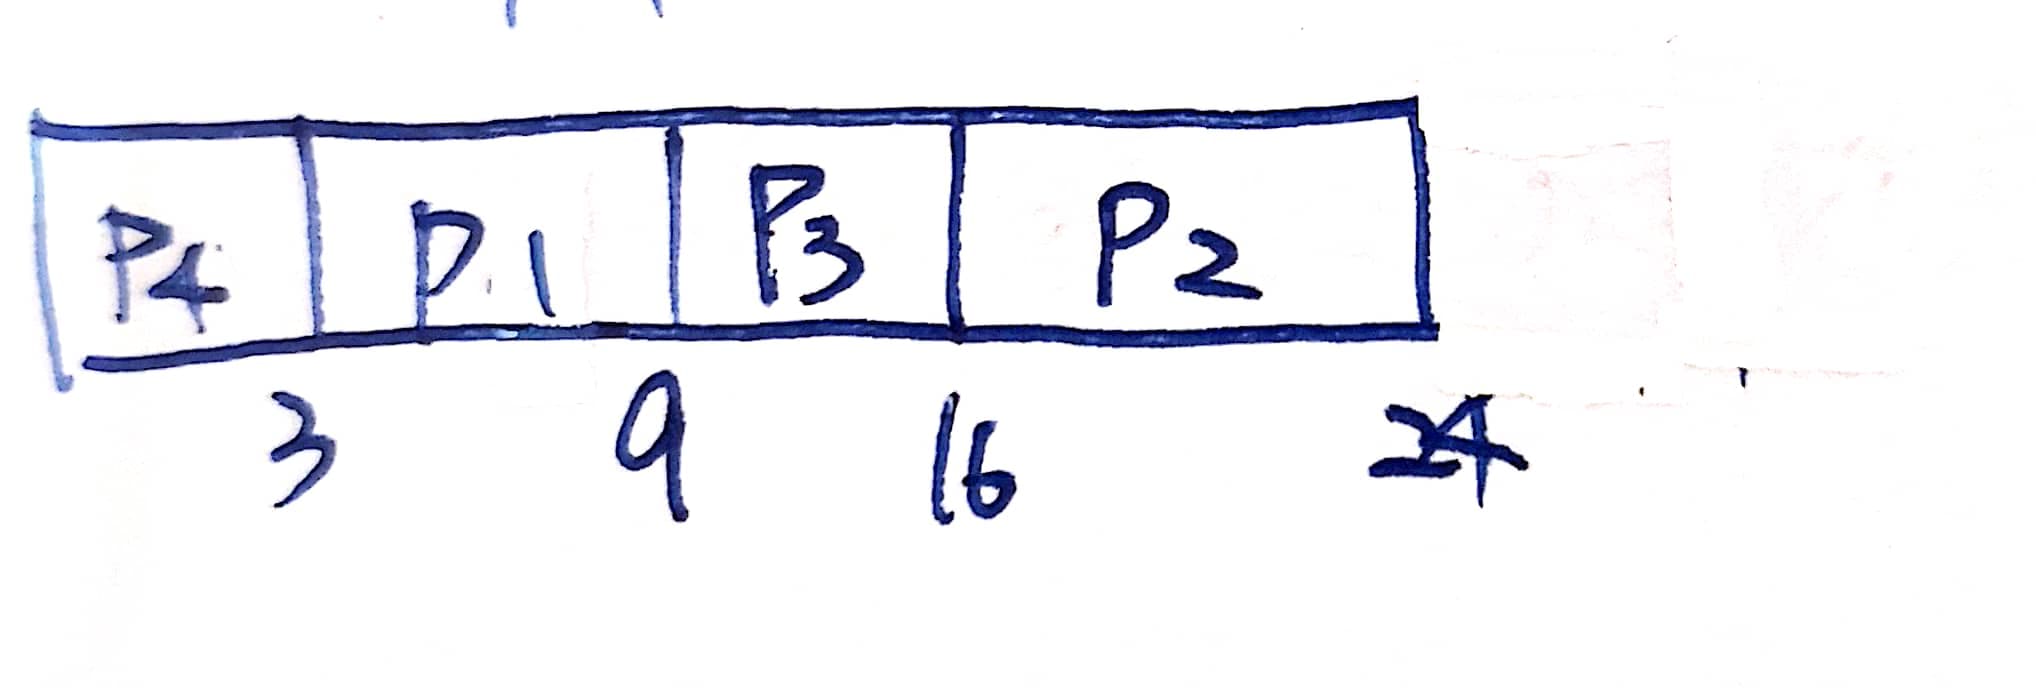 P4 P1 P3 P2
3 9 16 24